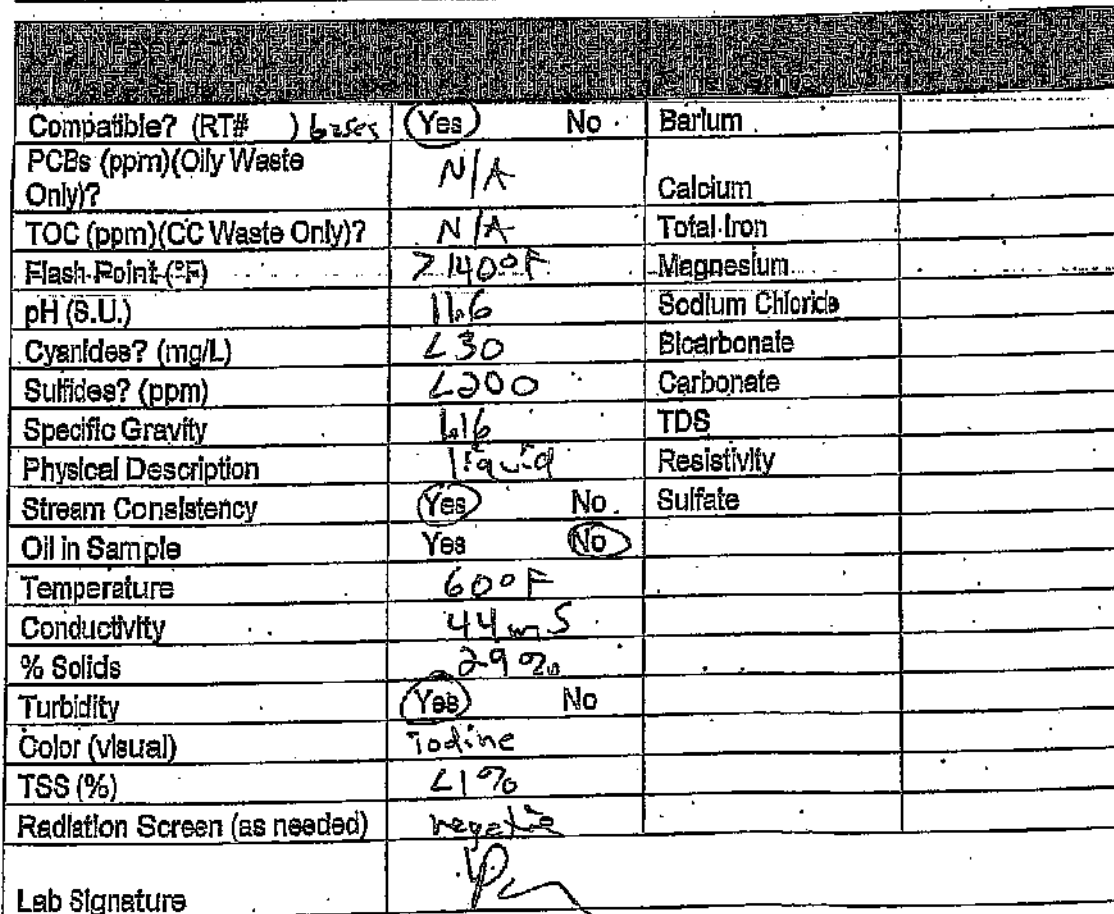 LAB INFORMATION
Compatible? (RT# ) bases Yes No Barium
PCBs (ppm)(Oily Waste Only)? N/A Calcium
TOC (ppm)(CC Waste Only)? N/A Total Iron
Flash Point (°F) >140°F Magnesium
pH (S.U.) 11.6 Sodium Chloride
Cyanides? (mg/L) <30 Bicarbonate
Sulfides? (ppm) <200 Carbonate
Specific Gravity 1.16 TDS
Physical Description liquid Resistivity
Stream Consistency Yes No Sulfate
Oil in Sample Yes No
Temperature 60°F
Conductivity 44 mS
% Solids 29%
Turbidity Yes No
Color (visual) Iodine
TSS (%) <1%
Radiation Screen (as needed) negative
Lab Signature